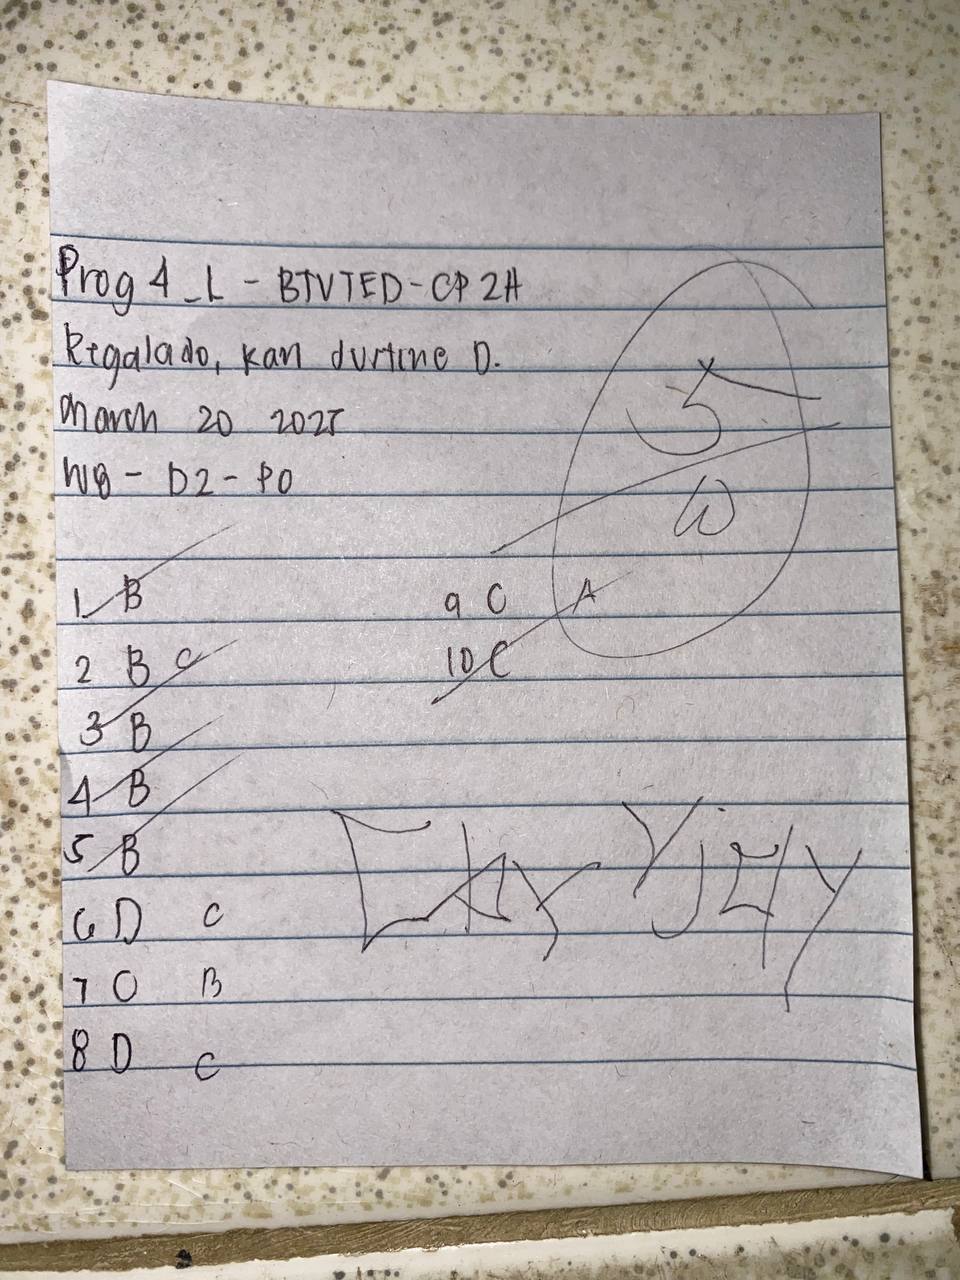 Prog 4_L - BTVTED-CP 2A
Regalado, Kan D.
March 20 2025
W8 - D2 - P0
5
10
1 B
2 B C
3 B
4 B
5 B
6 D C
7 C B
8 D C
9 C A
10 C